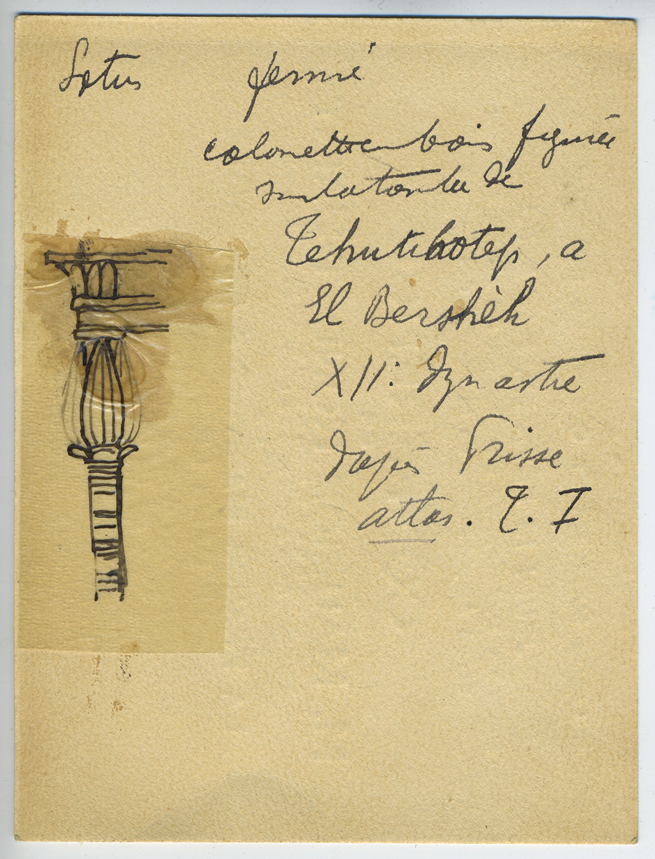 Lotus fermé
colonette en bois figurée
sur la tombe de
Tehutihotep, a
El Bersheh
XII: dynastie
dapès Prisse
atlas. T. I